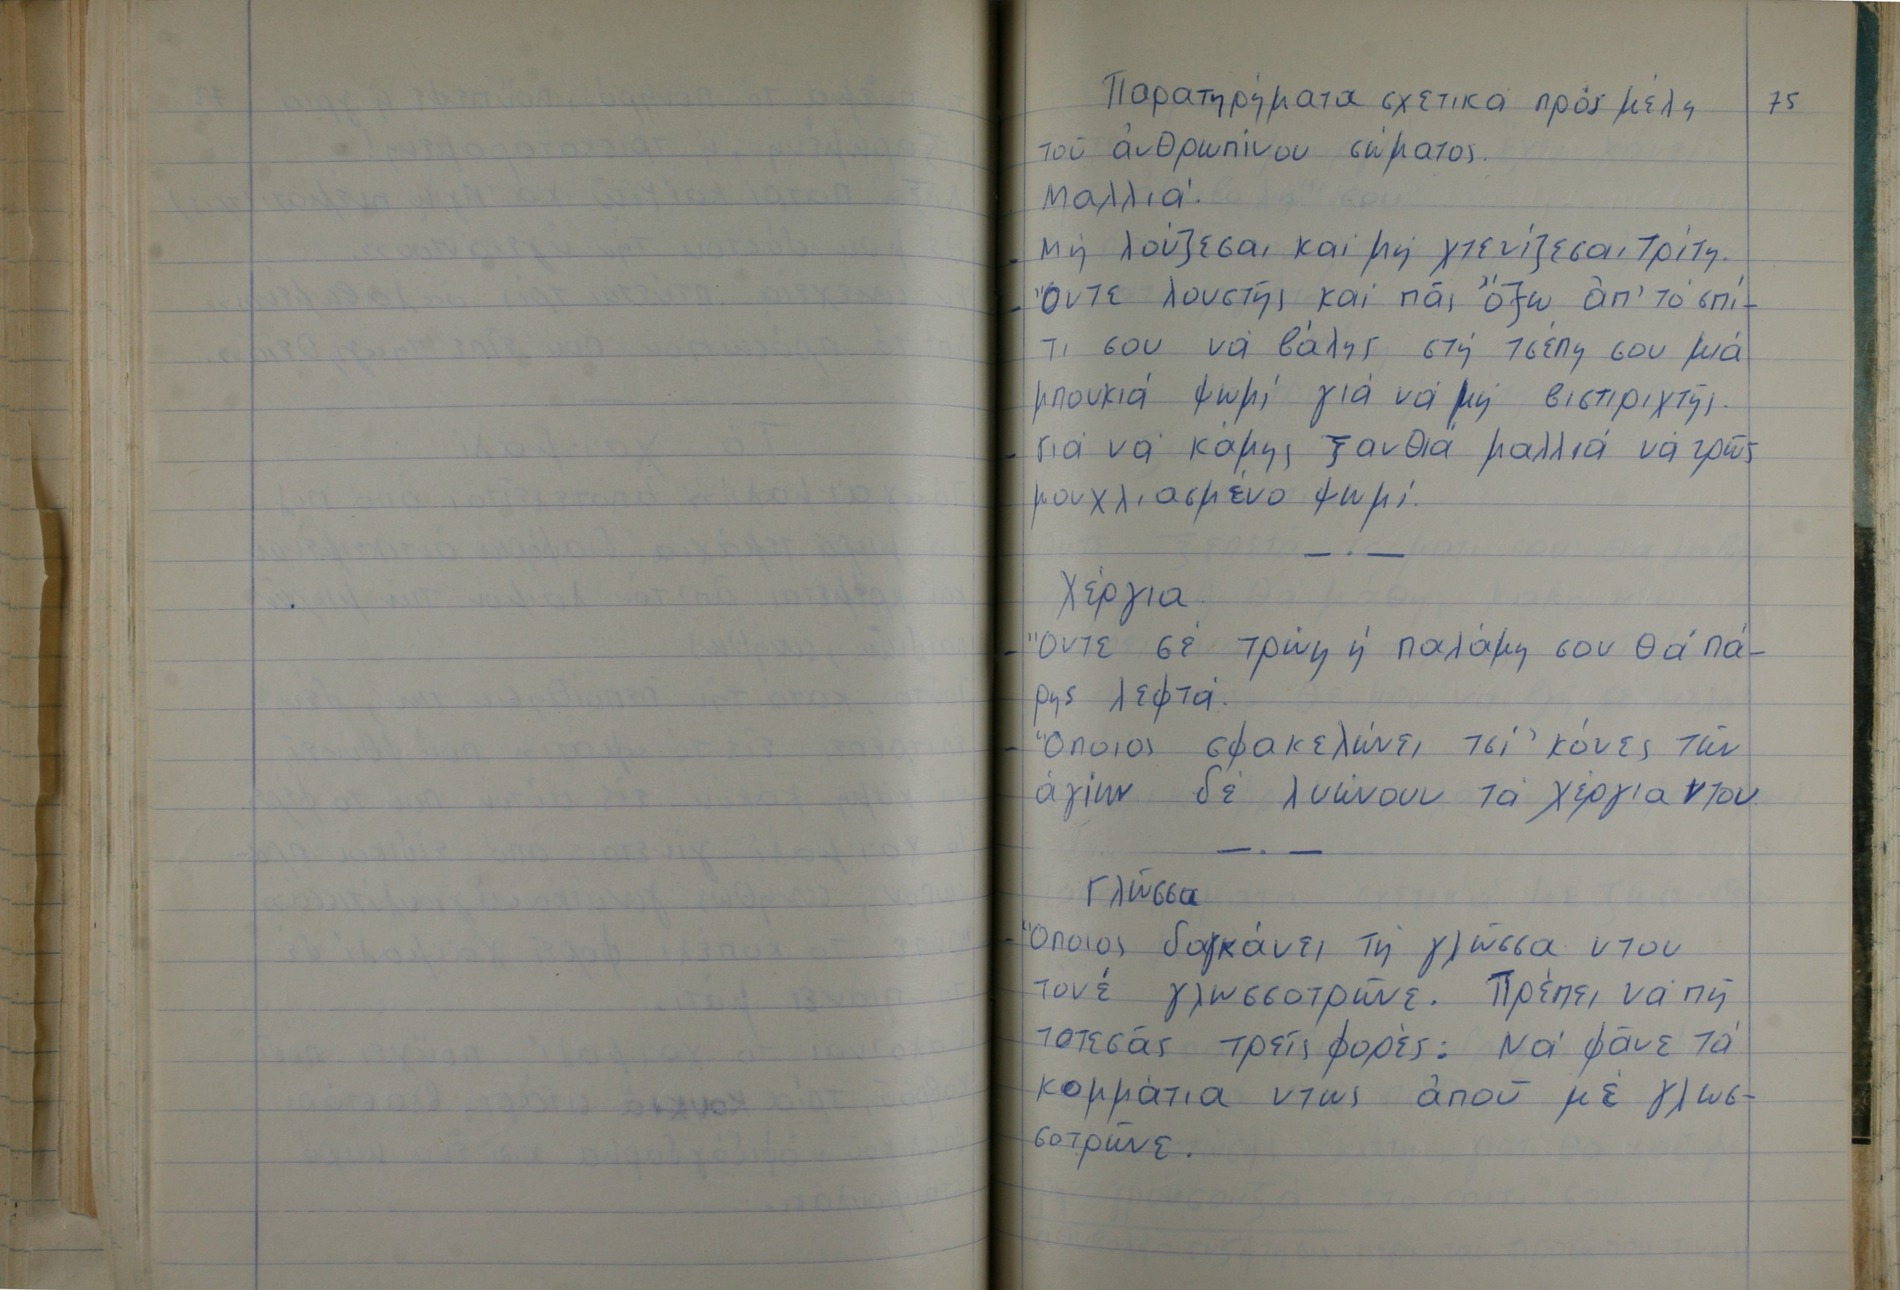 Παρατηρήματα σχετικά πρός μέλη 75
τοῦ ἀνθρωπίνου σώματος.
Μαλλιά.
- Μή λούζεσαι καί μή χτενίζεσαι Τρίτη.
- Ὅντε λουστῇς καί πᾶς ὄξω ἀπ' τό σπί-
τι σου νά βάλῃς στή τσέπη σου μιά
μπουκιά ψωμί γιά νά μή βιστιριχτῇς.
- Γιά νά κάμῃς ξανθιά μαλλιά νά τρῶς
μουχλιασμένο ψωμί.
— . —
Χέργια.
- Ὅντε σέ τρώῃ ἡ παλάμη σου θά πά-
ρῃς λεφτά.
- Ὅποιος σφακελώνει τσί 'κόνες τῶν
ἁγίων δέ λυώνουν τά χέργια ντου
— . —
Γλῶσσα
- Ὅποιος δαγκάνει τή γλῶσσα ντου
τονέ γλωσσοτρῶνε. Πρέπει νά πῇ
τοτεσάς τρεῖς φορές: Νά φᾶνε τά
κομμάτια ντως ἀποῦ μέ γλωσ-
σοτρῶνε.